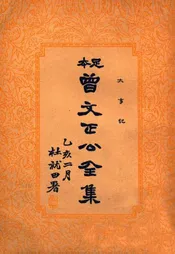 大事記
足本
曾文正公全集
乙亥二月
杜就田署